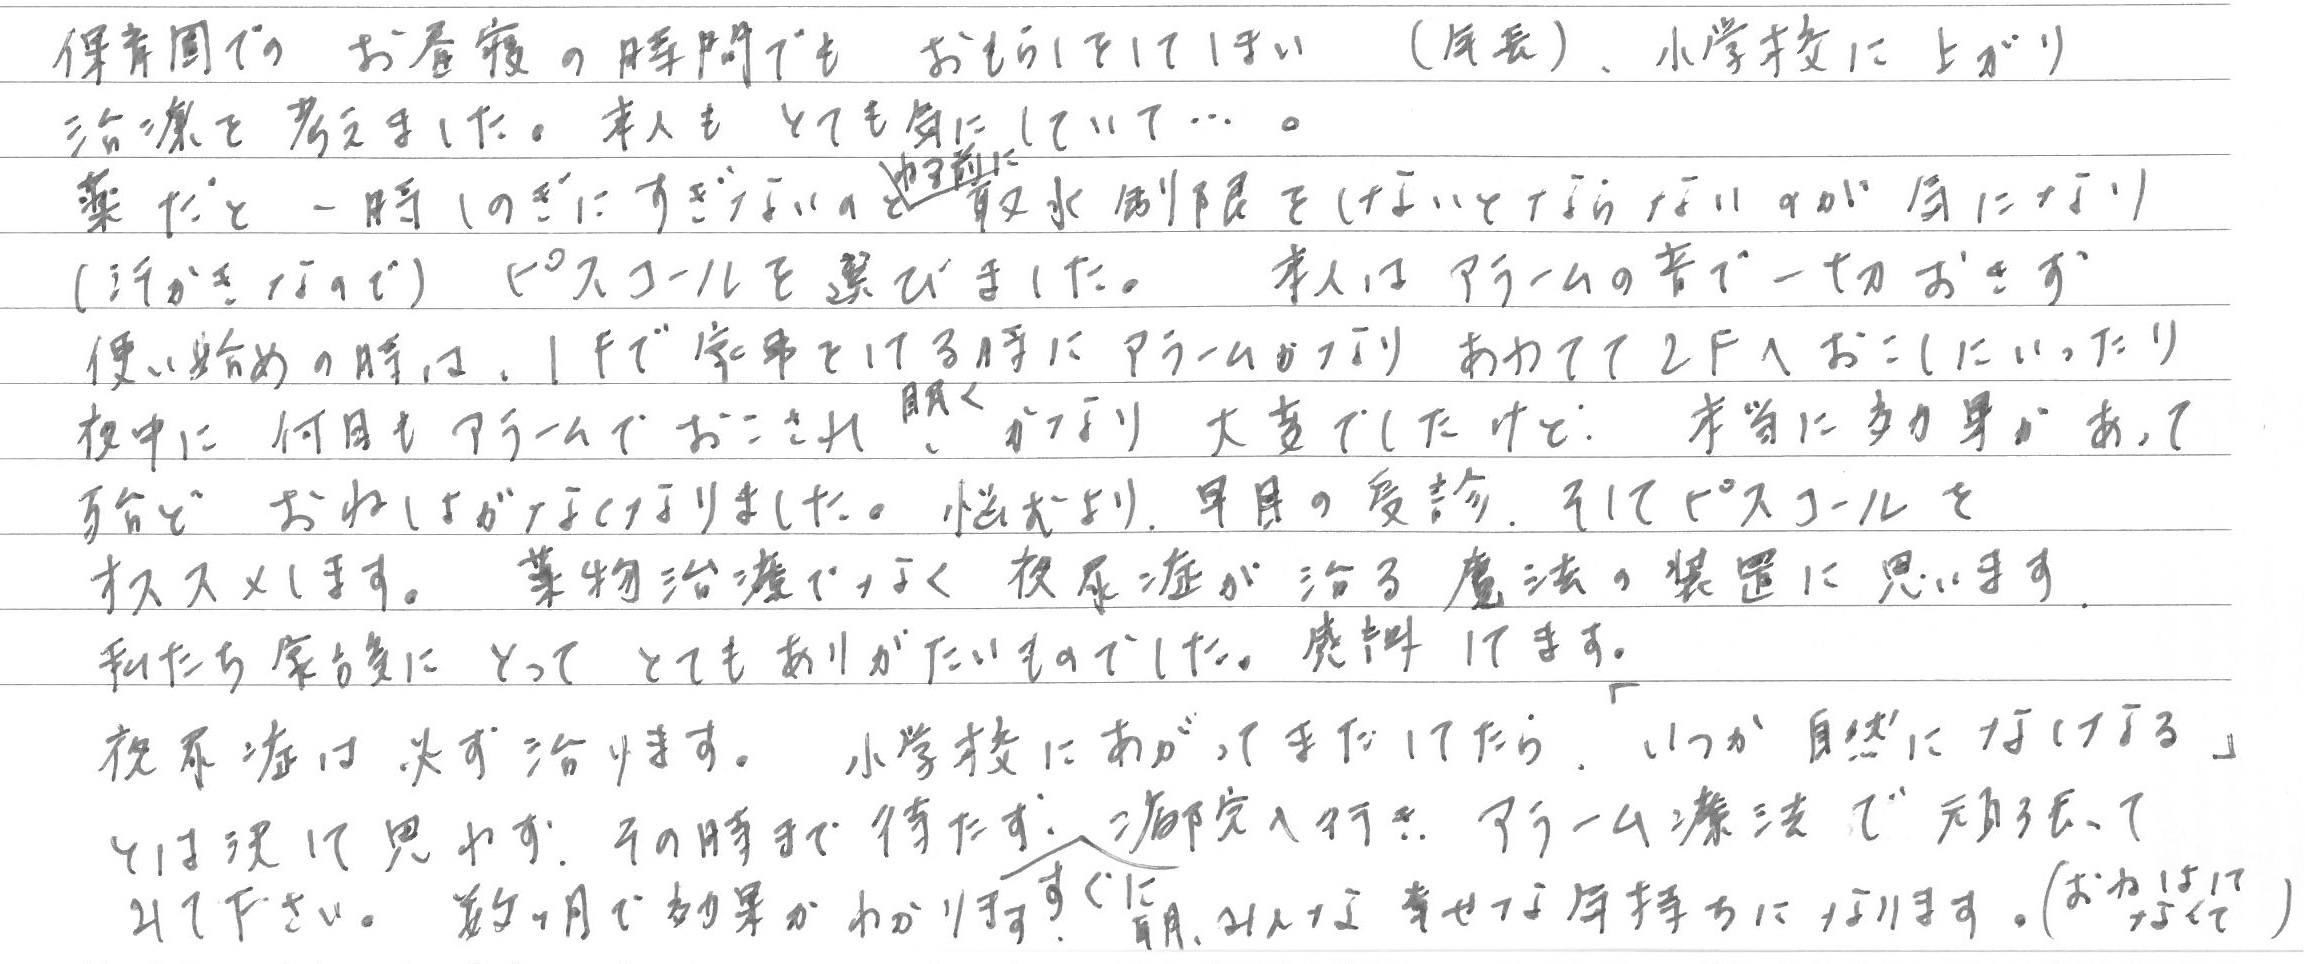 保育園での お昼寝の時間でも おもらしをしてしまい (年長)、小学校に上がり
治療を考えました。本人も とても気にしていて…。
薬だと 一時しのぎにすぎないのと 寝る前に 取水制限をしないとならないのが 気になり
(汗かきなので) ピスコールを選びました。 本人は アラームの音で一切おきず
使い始めの時は、1Fで家事をしてる時に アラームがなり あわてて2Fへおこしにいったり
夜中に 何回も アラームでおこされ、眠く かなり 大変でしたけど、本当に効果があって
殆ど おねしょがなくなりました。悩むより、早目の受診、そしてピスコールを
オススメします。 薬物治療でなく 夜尿症が 治る 魔法の装置に思います、
私たち家族に とって とてもありがたいものでした。感謝してます。
夜尿症は必ず治ります。 小学校にあがってまだしてたら、「いつか自然になくなる」
とは決して思わず、その時まで待たず、すぐに 病院へ行き、アラーム療法で頑張って
みて下さい。 数ヶ月で効果がわかります。 朝、みんな幸せな気持ちになります。(おねしょして なくて)